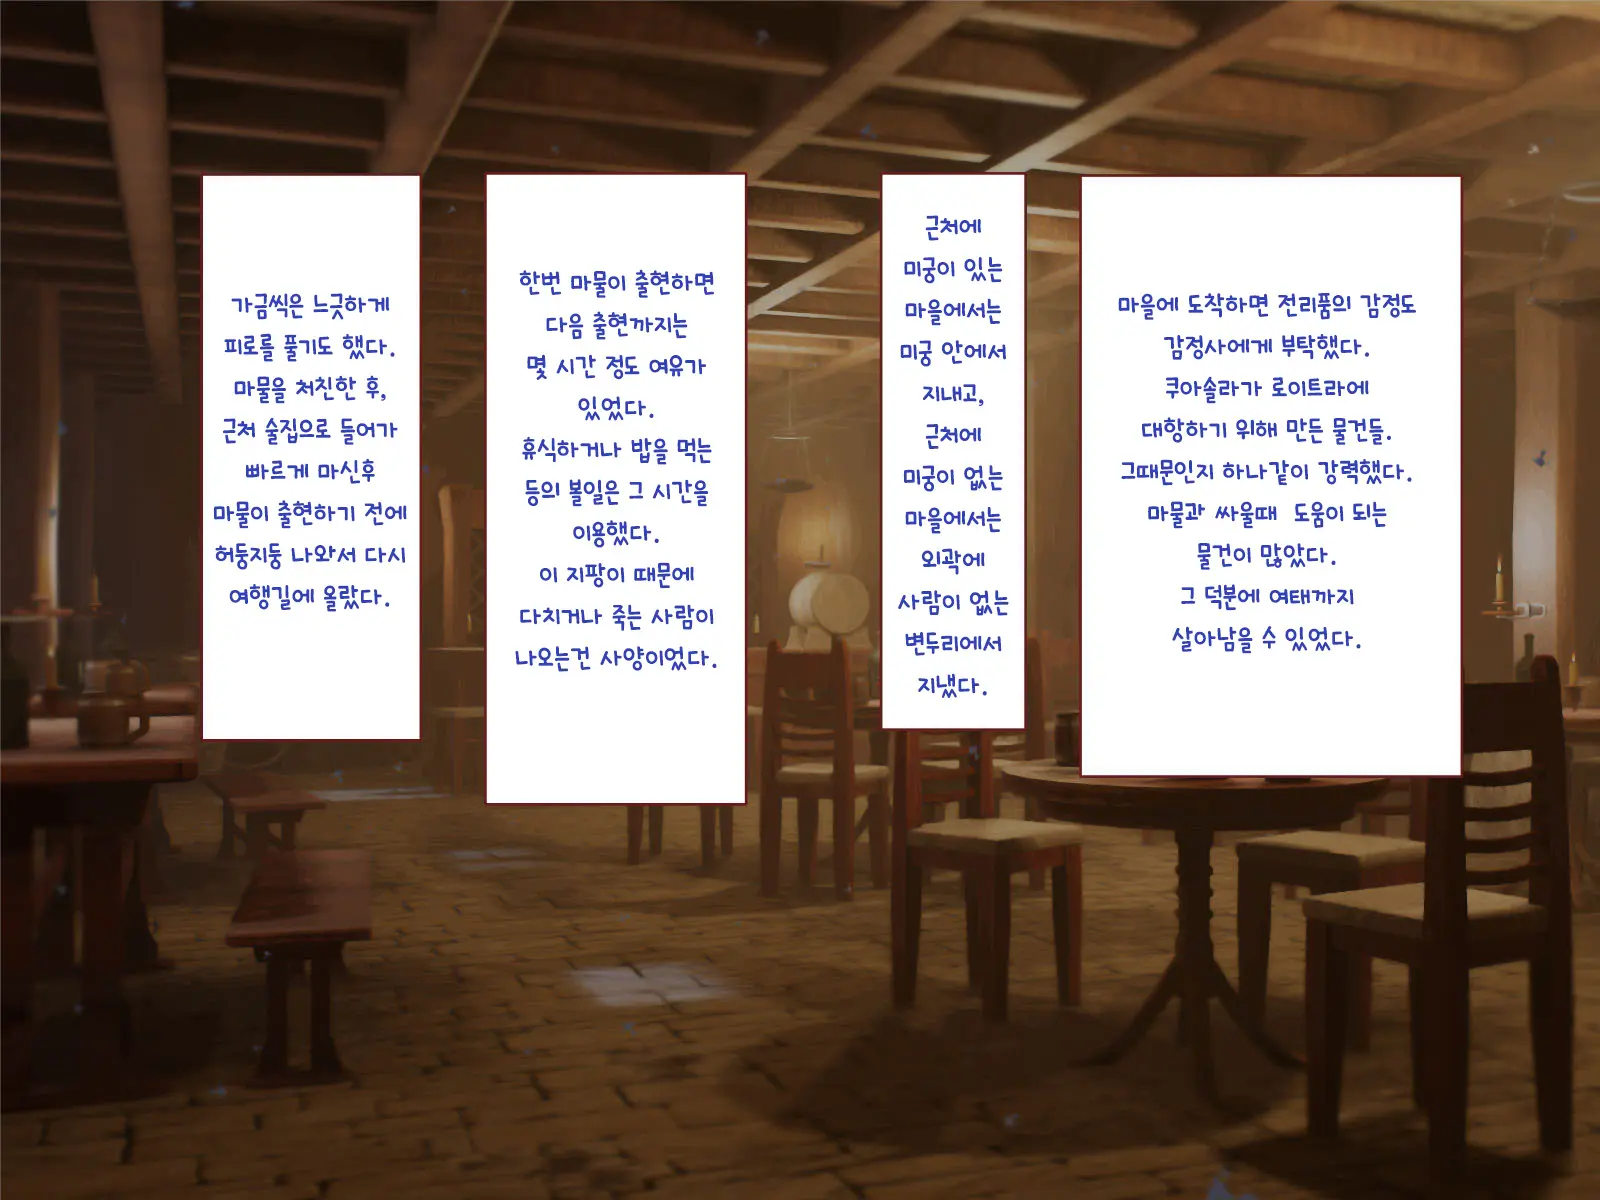 마을에 도착하면 전리품의 감정도
감정사에게 부탁했다.
쿠아솔라가 로이트라에
대항하기 위해 만든 물건들.
그때문인지 하나같이 강력했다.
마물과 싸울때 도움이 되는
물건이 많았다.
그 덕분에 여태까지
살아남을 수 있었다.
근처에
미궁이 있는
마을에서는
미궁 안에서
지내고,
근처에
미궁이 없는
마을에서는
외곽에
사람이 없는
변두리에서
지냈다.
한번 마물이 출현하면
다음 출현까지는
몇 시간 정도 여유가
있었다.
휴식하거나 밥을 먹는
등의 볼일은 그 시간을
이용했다.
이 지팡이 때문에
다치거나 죽는 사람이
나오는건 사양이었다.
가금씩은 느긋하게
피로를 풀기도 했다.
마물을 처친한 후,
근처 술집으로 들어가
빠르게 마신후
마물이 출현하기 전에
허둥지둥 나와서 다시
여행길에 올랐다.